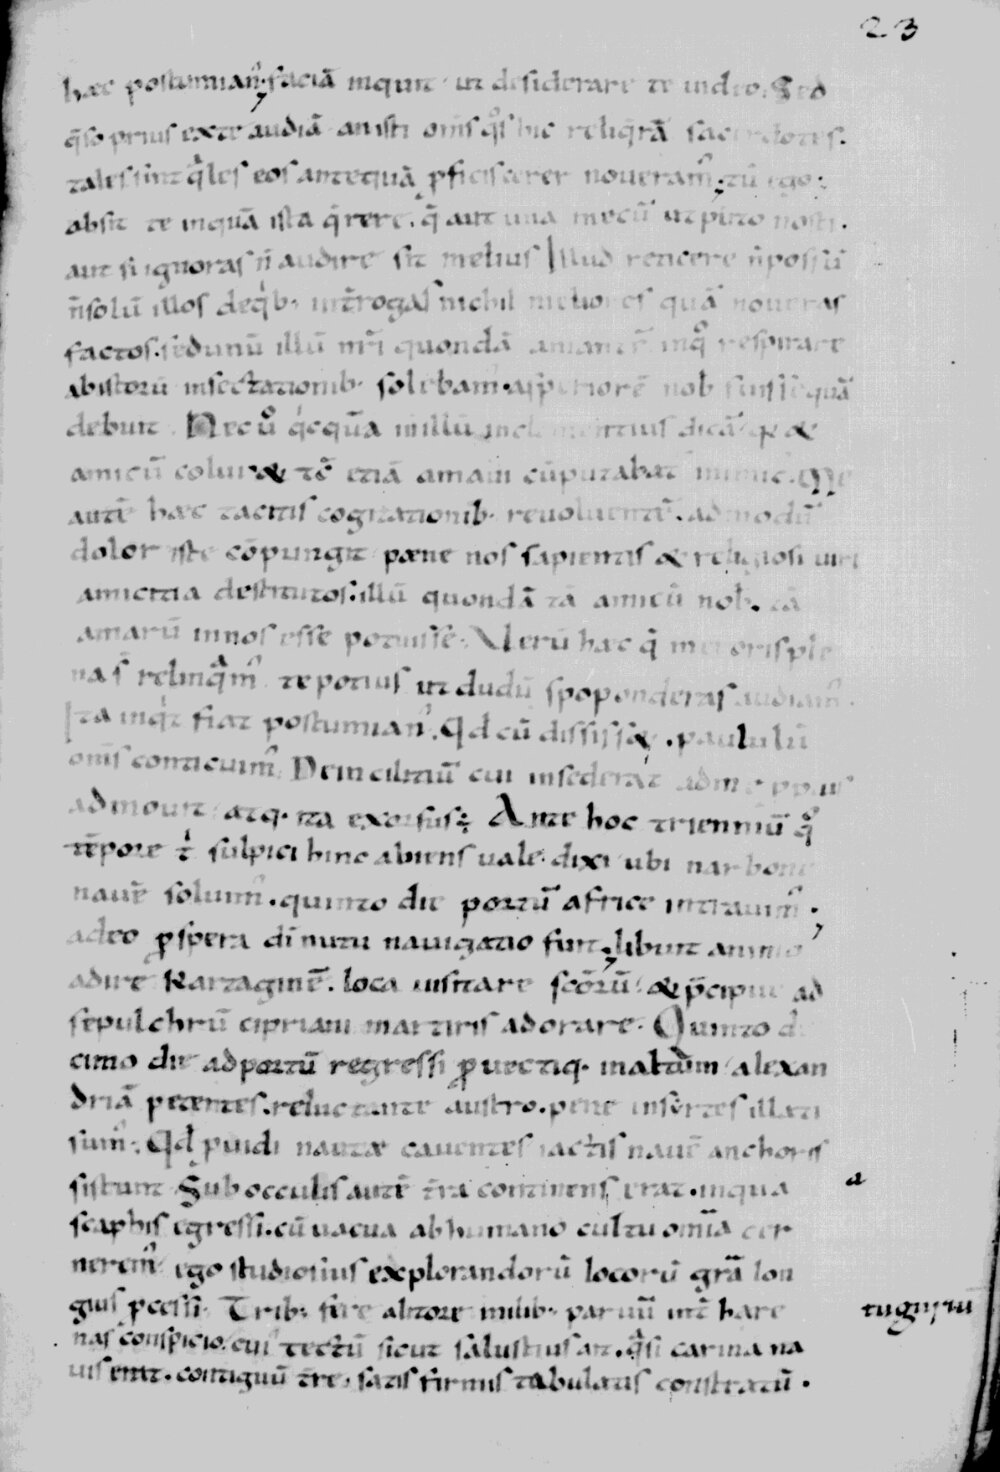 23
hæc postumian᷒; faciā inquit ut desiderare te uideo. Sed
q̄so prius exte audiā an isti om̄s q̊s hic reliq̄rā sacerdotes.
tales sint q̈les eos antequā ꝓficiscerer noueram᷒; tū ego;
absit te inquā ista q̄rere. q̄ aut una mecū ut puto nosti.
aut si ignoras n̄ audire sit melius Illud reticere n̄ possū
n̄ solū illos de qͥb; int̄rogas nichil meliores quā noueras
factos. sed unū illū nr̄i quondā amantē inq̊ respirare
ab istorū insectationib; solebam᷒. asperiorē nob̄ fuisse quā
debuit. Nec ů qͥcquā in illū inclementius dicā q &
amicū colui & tc̄ etiā amaui cū putabat᷒ inimic᷒. Me
autē hæc tacitis cogitationib; reuoluentē. admodū
dolor iste cōpungit pæne nos sapientis & religiosi uiri
amicitia destitutos. illū quondā tā amicū nob̄. tā
amarū in nos esse potuisse. Verū hæc q̄ meroris ple
na s̄ relinquam᷒ te potius ut dudū spoponderas audiam᷒.
Ita inqͥt fiat postumian᷒. Qd̄ cū dixisset. paululū
om̄s conticuim᷒. Dein cilitiū cui insederat ad me ppius
admouit atq; ita exorsus; Ante hoc trienniū q̊
tēpore tͥ sulpici hinc abiens uale dixi ubi narbone
nauē soluim᷒. quinto die portū africe intrauim᷒;
adeo ꝓspera di nutu nauigatio fuit; libuit animo
adire Kartaginē. loca uisitare sc̄orū & p̄cipue ad
sepulchrū cipriani martiris adorare. Quinto de
cimo die ad portū regressi ꝓuectiq; in altum alexan
driā petentes. reluctante austro. pene in sẏrtes illati
sum᷒. Qd̄ ꝓuidi nautæ cauentes iactis nauē anchoris
sistunt Sub occulis autē t̄ra continens erat. in qua
scaphis egressi. cū uacua ab humano cultu om̄ia cer
nerem᷒ ego studiosius explorandorū locorū gr̄a lon
gius p̄cessi. Trib; fere a litore milib; paruū int̄ hare
nas conspicio. cui᷒ tectū sicut salustius ait. q̈si carina na
uis erat. contiguū t̄re. satis firmis tabulatis constratū.
a
tuguriū